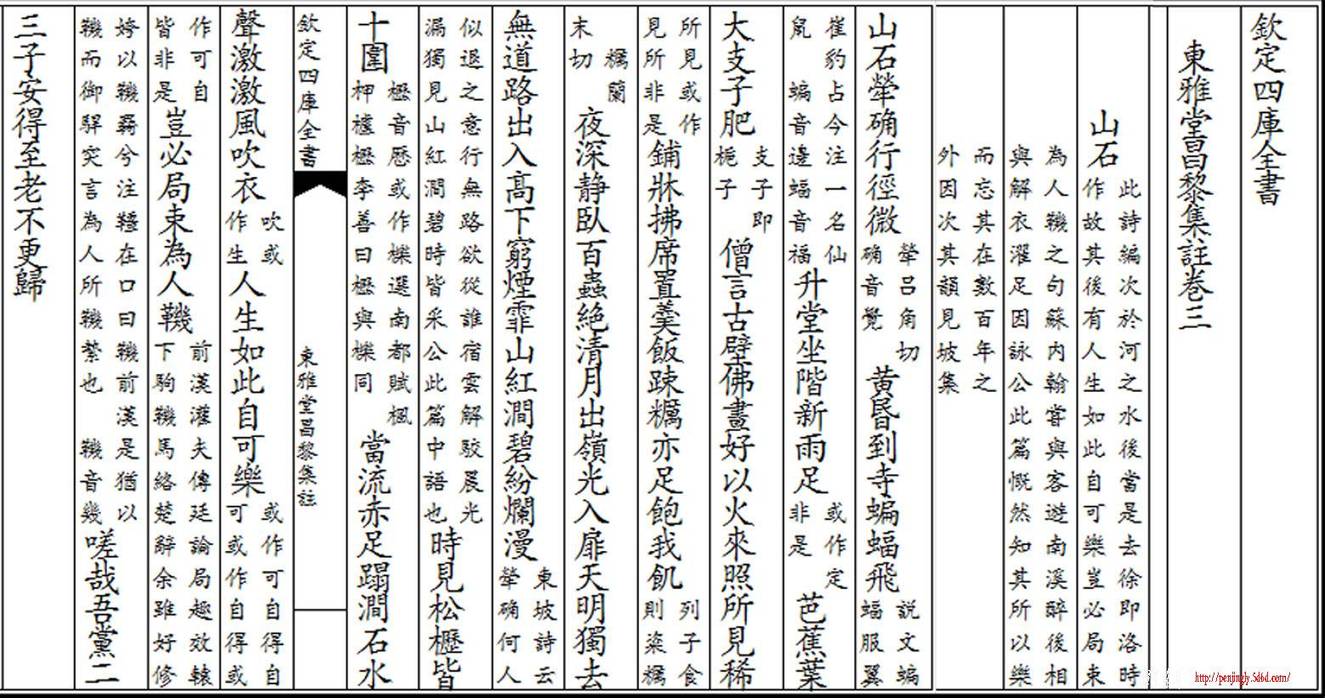 欽定四庫全書
東雅堂昌黎集註卷三
山石
此詩編次於河之水後當是去徐即洛時
作故其後有人生如此自可樂豈必局束
為人鞿之句蘇内翰嘗與客遊南溪醉後相
與解衣濯足因詠公此篇慨然知其所以樂
而忘其在數百年之
外因次其韻見坡集
山石犖确行徑微
犖吕角切
确音覺
黄昏到寺蝙蝠飛
説文蝙
蝠服翼
崔豹占今注一名仙
鼠 蝙音邊蝠音福
升堂坐階新雨足
或作定
非是
芭蕉葉
大支子肥
支子即
梔子
僧言古壁佛畫好以火來照所見稀
所見或作
見所非是
鋪牀拂席置羹飯疎糲亦足飽我飢
列子食
則粢糲
糲蘭
末切
夜深静臥百蟲絶清月出嶺光入扉天明獨去
無道路出入髙下窮煙霏山紅澗碧紛爛漫
東坡詩云
犖确何人
似退之意行無路欲從誰宿雲解駮晨光
漏獨見山紅澗碧時皆采公此篇中語也
時見松櫪皆
十圍
櫪音歴或作櫟選南都賦楓
柙櫨櫪李善曰櫪與櫟同
當流赤足蹋澗石水
欽定四庫全書
東雅堂昌黎集註
聲激激風吹衣
吹或
作生
人生如此自可樂
或作可自得自
可或作自得或
作可自
皆非是
豈必局束為人鞿
前漢灌夫傳廷論局趣效轅
下駒鞿馬絡楚辭余雖好修
姱以鞿羇兮注韁在口曰鞿前漢是猶以
鞿而御駻突言為人所鞿縶也 鞿音幾
嗟哉吾黨二
三子安得至老不更歸
http://penjingly.5d6d.com/